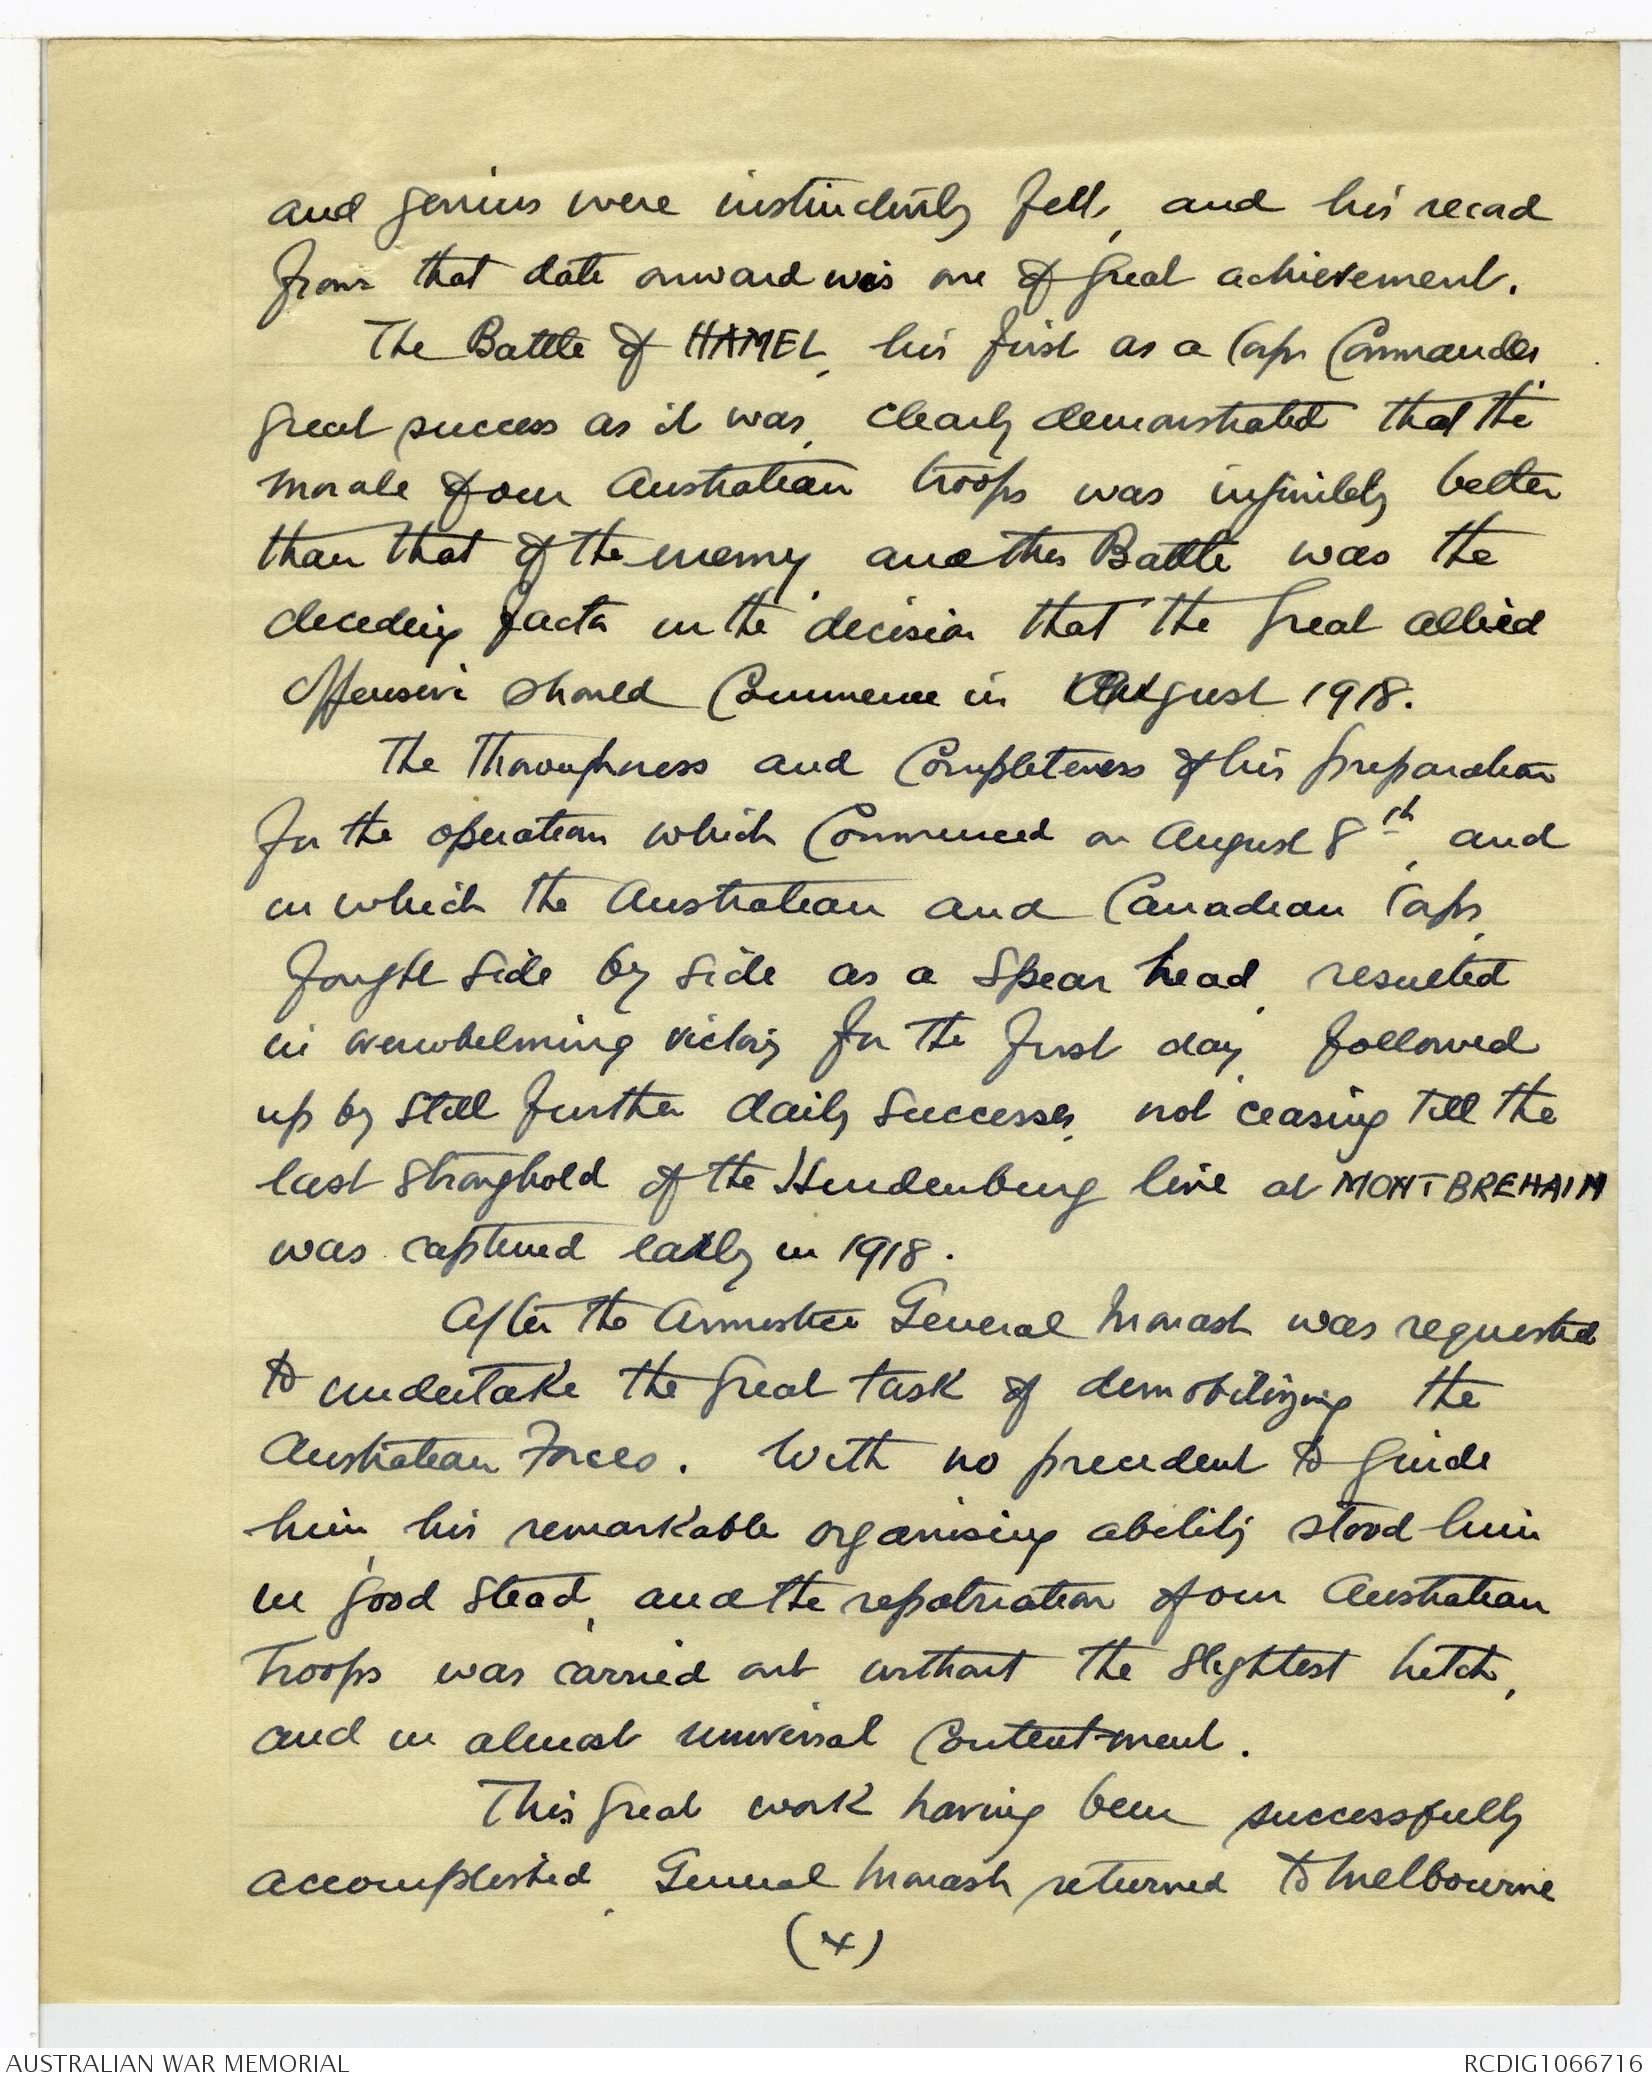 and genius were instinctively felt, and his record
from that date onward was one of great achievement.
The Battle of HAMEL, his first as a Corps Commander
great success as it was, clearly demonstrated that the
morale of our Australian troops was infinitely better
than that of the enemy, and this Battle was the
deceding factor in the decision that the great allied
Offensive should Commence in August 1918.
The Thoroughness and Completeness of his preparation
for the operation which Commenced on August 8th, and
in which the Australian and Canadian Corps,
fought side by side as a spear head, resulted
in overwhelming victory for the first day, followed
up by still further daily successes, not ceasing till the
last stronghold of the Hindenburg line at MONTBREHAIN
was captured early in 1918.
After the Armistice General Monash was requested
to undertake the great task of demobilizing the
Australian Forces. With no precedent to guide
him, his remarkable organising ability stood him
in good stead, and the repatriation of our Australian
Troops was carried out without the slightest hitch,
and in almost universal Contentment.
This great work having been successfully
accomplished, General Monash returned to Melbourne
(4)
AUSTRALIAN WAR MEMORIAL
RCDIG1066716